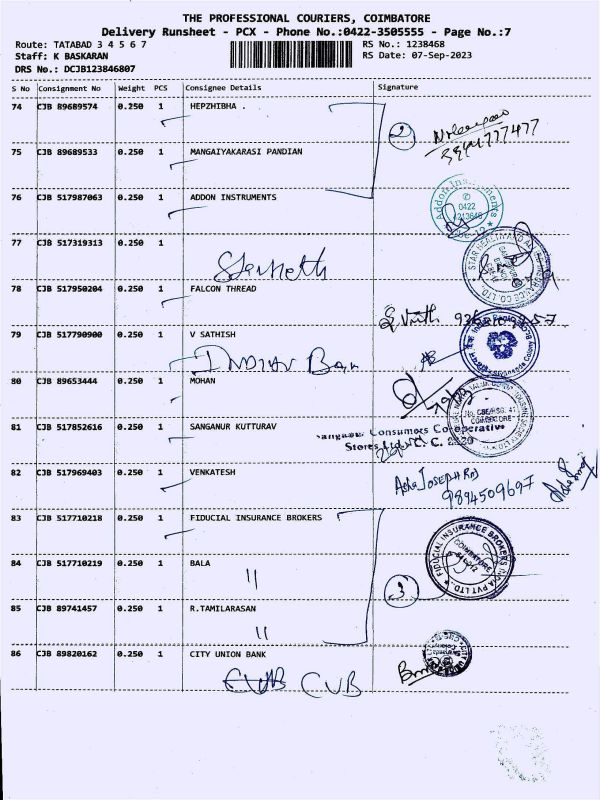 THE PROFESSIONAL COURIERS, COIMBATORE
Delivery Runsheet - PCX - Phone No.:0422-3505555 - Page No.:7
Route: TATABAD 3 4 5 6 7 RS No.: 1238468
Staff: K BASKARAN RS Date: 07-Sep-2023
DRS No.: DCJB123846807
S No Consignment No Weight PCS Consignee Details Signature
74 CJB 89689574 0.250 1 HEPZHIBHA .
2
75 CJB 89689533 0.250 1 MANGAIYAKARASI PANDIAN
76 CJB 517987063 0.250 1 ADDON INSTRUMENTS
Addon Instruments
0422
77 CJB 517319313 0.250 1
STAR HEALTH AND
INSURANCE CO. LTD.
78 CJB 517950204 0.250 1 FALCON THREAD
79 CJB 517790900 0.250 1 V SATHISH
INDIAN Bank
80 CJB 89653444 0.250 1 MOHAN
COIMBATORE
81 CJB 517852616 0.250 1 SANGANUR KUTTURAV
Consumers Co-operative
Stores Ltd.
82 CJB 517969403 0.250 1 VENKATESH
Asha JOSEPH RD
9894509697
83 CJB 517710218 0.250 1 FIDUCIAL INSURANCE BROKERS
FIDUCIAL INSURANCE BROKERS INDIA PVT LTD
COIMBATORE
84 CJB 517710219 0.250 1 BALA
11
3
85 CJB 89741457 0.250 1 R.TAMILARASAN
11
86 CJB 89820162 0.250 1 CITY UNION BANK
CUB CUB